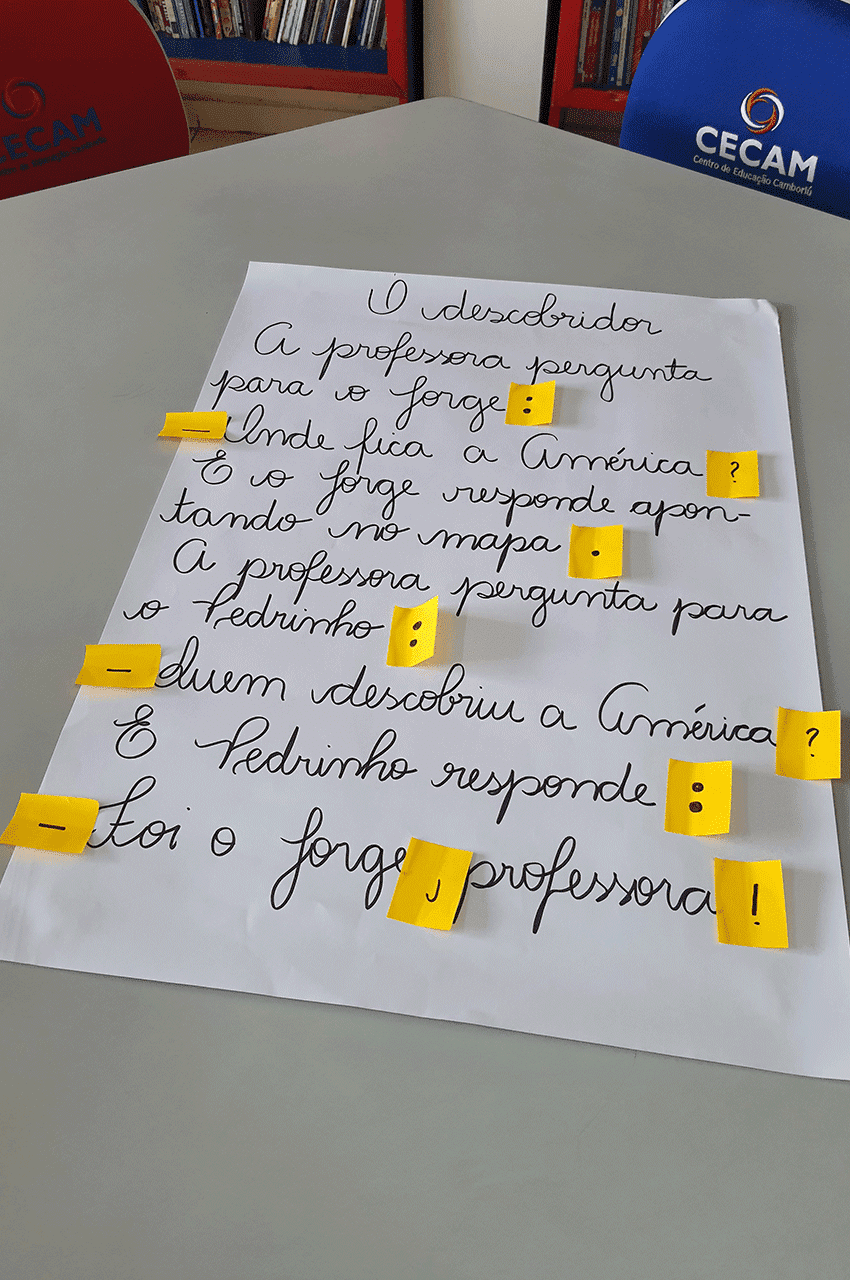 CECAM
CECAM
Centro de Educação Camboriú
O descobridor
A professora pergunta
para o Jorge:
— Onde fica a América?
E o Jorge responde apon-
tando no mapa.
A professora pergunta para
o Pedrinho:
— Quem descobriu a América?
E Pedrinho responde:
— Foi o Jorge, professora!